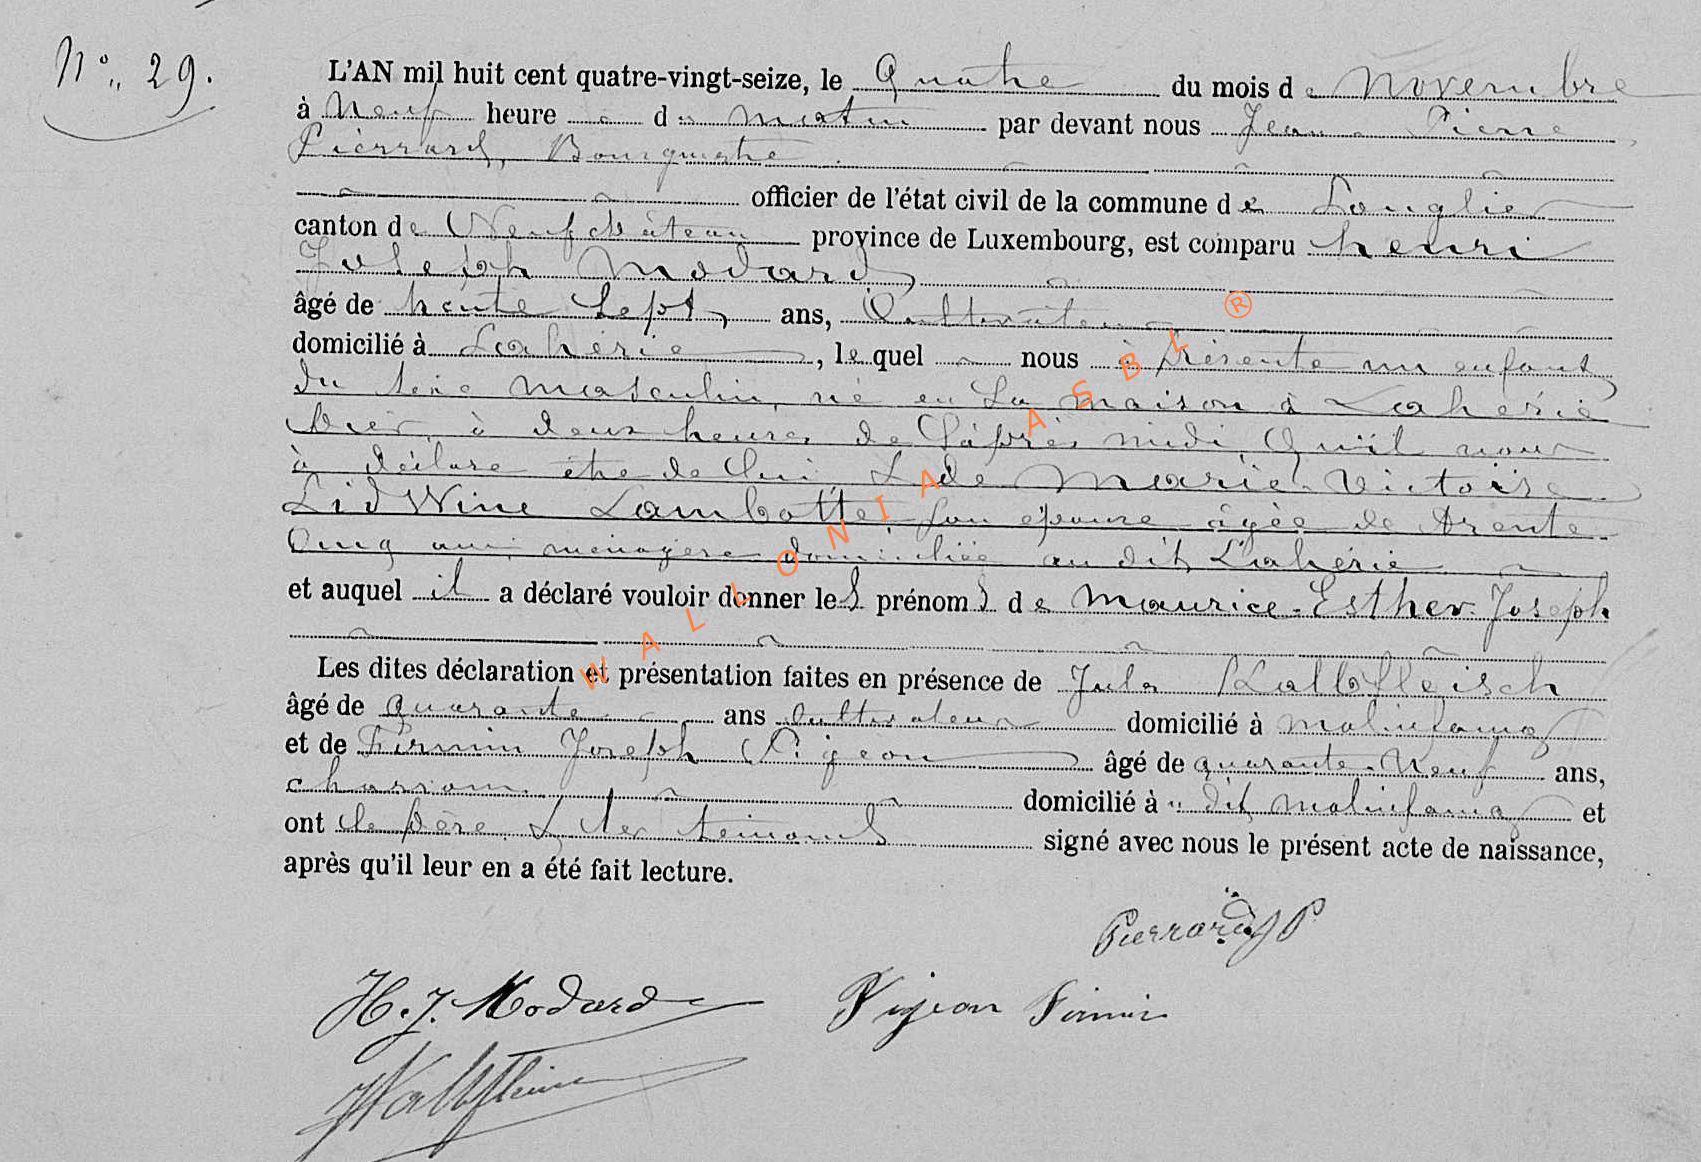 N° 29.
L'AN mil huit cent quatre-vingt-seize, le Quatre du mois de Novembre
à Neuf heure du matin par devant nous Jean Pierre
Pierrard, Bourgmestre
officier de l'état civil de la commune de Longlier
canton de Neufchâteau province de Luxembourg, est comparu Henri
Joseph Modard,
âgé de trente sept ans, Cultivateur
domicilié à Lahérie, lequel nous à présenté un enfant
du sexe masculin, né en sa maison à Lahérie
hier, à deux heures de l'après midi, qu'il nous
à déclaré être de lui & de Marie Victoire
LidWine Lambotte, son épouse âgée de trente
cinq ans, ménagère domiciliée au dit Lahérie
et auquel il a déclaré vouloir donner les prénoms de Maurice-Esther-Joseph
Les dites déclaration et présentation faites en présence de Jules Kalbfleisch
âgé de quarante ans cultivateur domicilié à molinfaing
et de Firmin Joseph Pigeon âgé de quarante-neuf ans,
domicilié à dit molinfaing et
ont le père & les témoins signé avec nous le présent acte de naissance,
après qu'il leur en a été fait lecture.
Pierrard JP
H. J. Modard Pigeon Firmin
WALLONIA ASBL ®